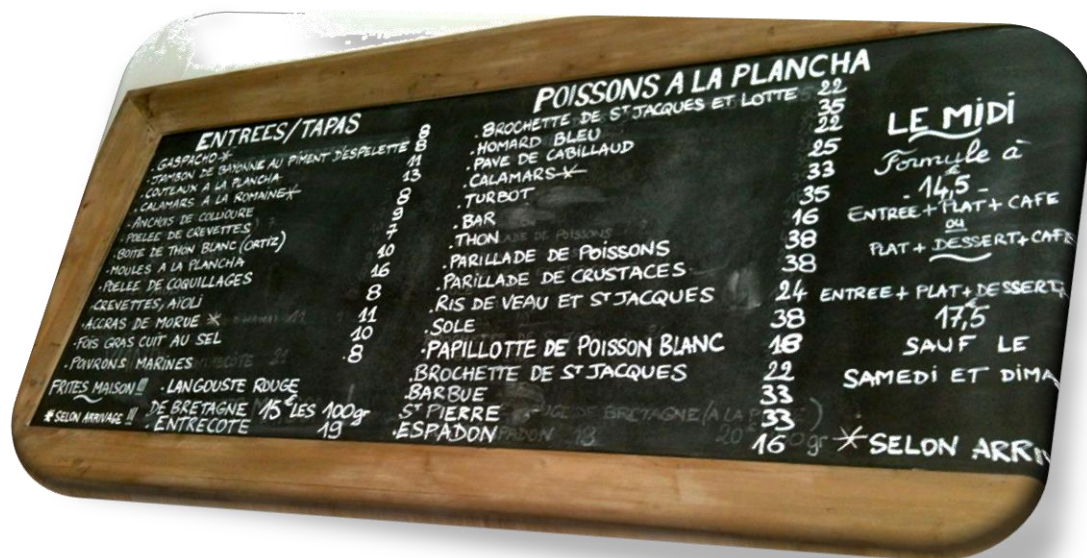 ENTREES/TAPAS
.GASPACHO* 8
.JAMBON DE BAYONNE AU PIMENT D'ESPELETTE 8
.COUTEAUX A LA PLANCHA 11
.CALAMARS A LA ROMAINE* 13
.ANCHOIS DE COLLIOURE 8
.POELEE DE CREVETTES 9
.BOITE DE THON BLANC (ORTIZ) 7
.MOULES A LA PLANCHA 10
.POELEE DE COQUILLAGES 16
.CREVETTES, AïOLI 8
.ACCRAS DE MORUE * 11
.FOIS GRAS CUIT AU SEL 10
.POIVRONS MARINES 8
FRITES MAISON !!!
*SELON ARRIVAGE !!!
.LANGOUSTE ROUGE
DE BRETAGNE 15€ LES 100gr
.ENTRECOTE 19
POISSONS A LA PLANCHA
.BROCHETTE DE ST JACQUES ET LOTTE 22
.HOMARD BLEU 35
.PAVE DE CABILLAUD 22
.CALAMARS* 25
.TURBOT 33
.BAR 35
.THON 16
.PARILLADE DE POISSONS 38
.PARILLADE DE CRUSTACES 38
.RIS DE VEAU ET ST JACQUES 24
.SOLE 38
.PAPILLOTTE DE POISSON BLANC 18
.BROCHETTE DE ST JACQUES 22
.BARBUE 33
.ST PIERRE 33
.ESPADON 16
LE MIDI
Formule à
- 14,5 € -
ENTREE + PLAT + CAFE
ou
PLAT + DESSERT + CAFE
ENTREE + PLAT + DESSERT
17,5 €
SAUF LE
SAMEDI ET DIMA
*SELON ARRI